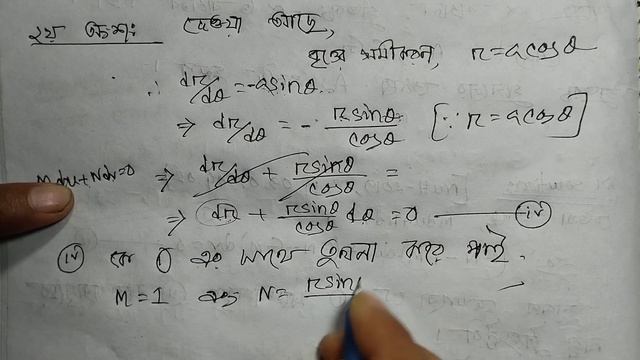 ২য় অংশঃ দেওয়া আছে,
বৃত্তের সমীকরণ, r = a cosθ
∴ dr/dθ = -a sinθ.
⇒ dr/dθ = - r sinθ/cosθ [∵ r = a cosθ]
Mdx+Ndy=0 ⇒ dr/dθ + r sinθ/cosθ =
⇒ dr + r sinθ/cosθ dθ = 0 (iv)
(iv) কে (i) এর সাথে তুলনা করে পাই,
M = 1 এবং N = r sin